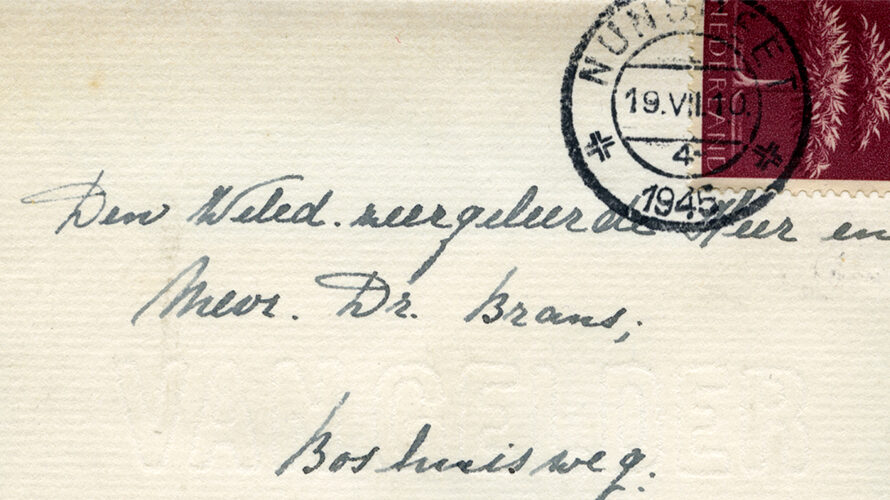 NUNSPEET
19.VII.10.
4
1945
NEDERLAND
Den Weled. zeergeleerde Heer en
Mevr. Dr. Brans;
VAN GELDER
Boshuisweg.